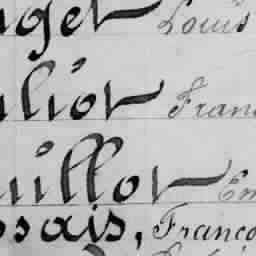 nget Louis
uliot Fran
uillot Em
ssais, Franço